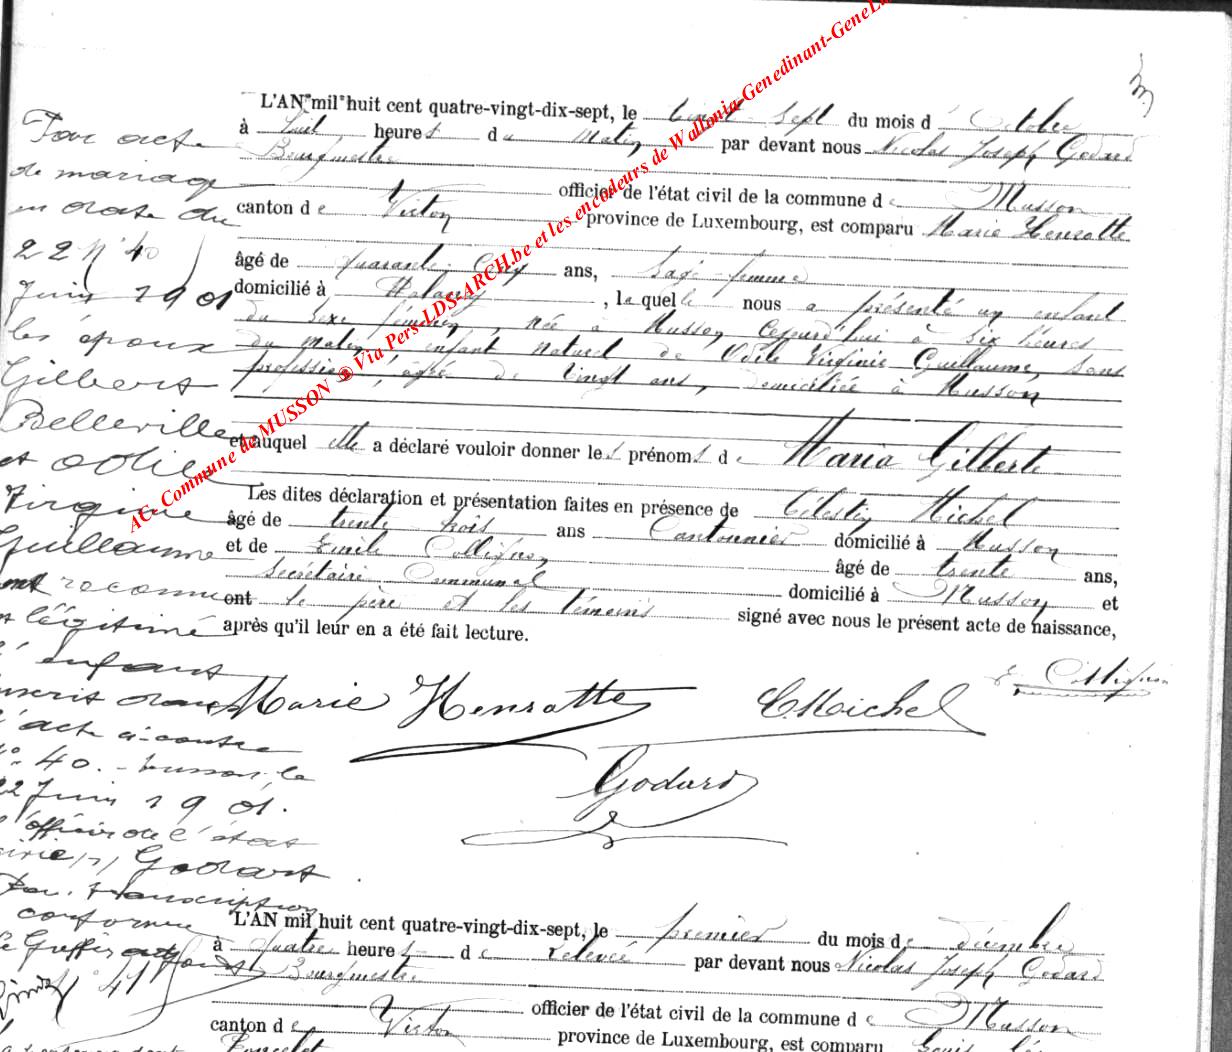 AC. Commune de MUSSON @ Via Pers-LDS-ARCH.be et les encodeurs de Wallonia-Genedinant-GeneLux
L'AN mil huit cent quatre-vingt-dix-sept, le vingt-sept du mois d'Octobre
à huit heures du matin par devant nous Nicolas Joseph Godard
Bourgmestre
officier de l'état civil de la commune de Musson
canton de Virton province de Luxembourg, est comparu Marie Henrotte
âgé de quarante-cinq ans, sage-femme
domicilié à Halanzy, laquelle nous a présenté un enfant
du sexe féminin, née à Musson cejourd'hui à six heures
du matin, enfant naturel de Odile Virginie Guillaume, sans
profession, âgée de vingt ans, domiciliée à Musson
et auquel elle a déclaré vouloir donner les prénoms de Maria Gilberte
Les dites déclaration et présentation faites en présence de Célestin Michel
âgé de trente-trois ans Cantonnier domicilié à Musson
et de Emile Collignon âgé de trente ans,
Secrétaire Communal domicilié à Musson et
ont le père et les témoins signé avec nous le présent acte de naissance,
après qu'il leur en a été fait lecture.
Marie Henrotte C. Michel E. Collignon
Godard
Par acte
de mariage
en date du
22 N° 40
Juin 1901
les époux
Gilbert
Belleville
et Odile
Virginie
Guillaume
ont reconnu
et légitimé
l'enfant
inscrit dans
l'acte ci-contre
N° 40. - Musson, le
22 Juin 1901.
L'officier de l'état
civil, /s/ Godart
Pour transcription
conforme
Le Greffier
N° 41
L'AN mil huit cent quatre-vingt-dix-sept, le premier du mois de décembre
à quatre heures de relevée par devant nous Nicolas Joseph Godard
Bourgmestre
officier de l'état civil de la commune de Musson
canton de Virton province de Luxembourg, est comparu Louis